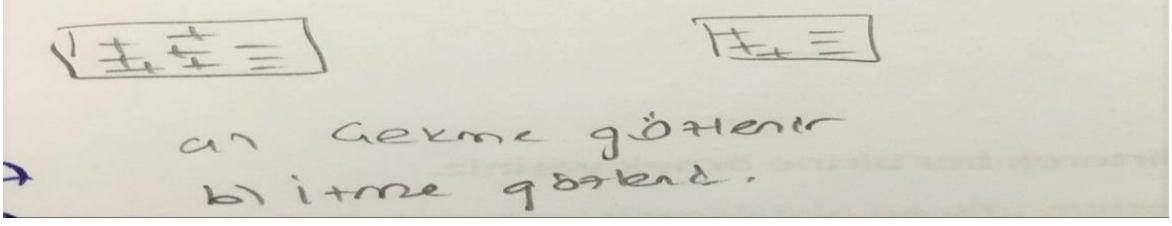 a) Çekme gözlenir
b) itme gözlenir.